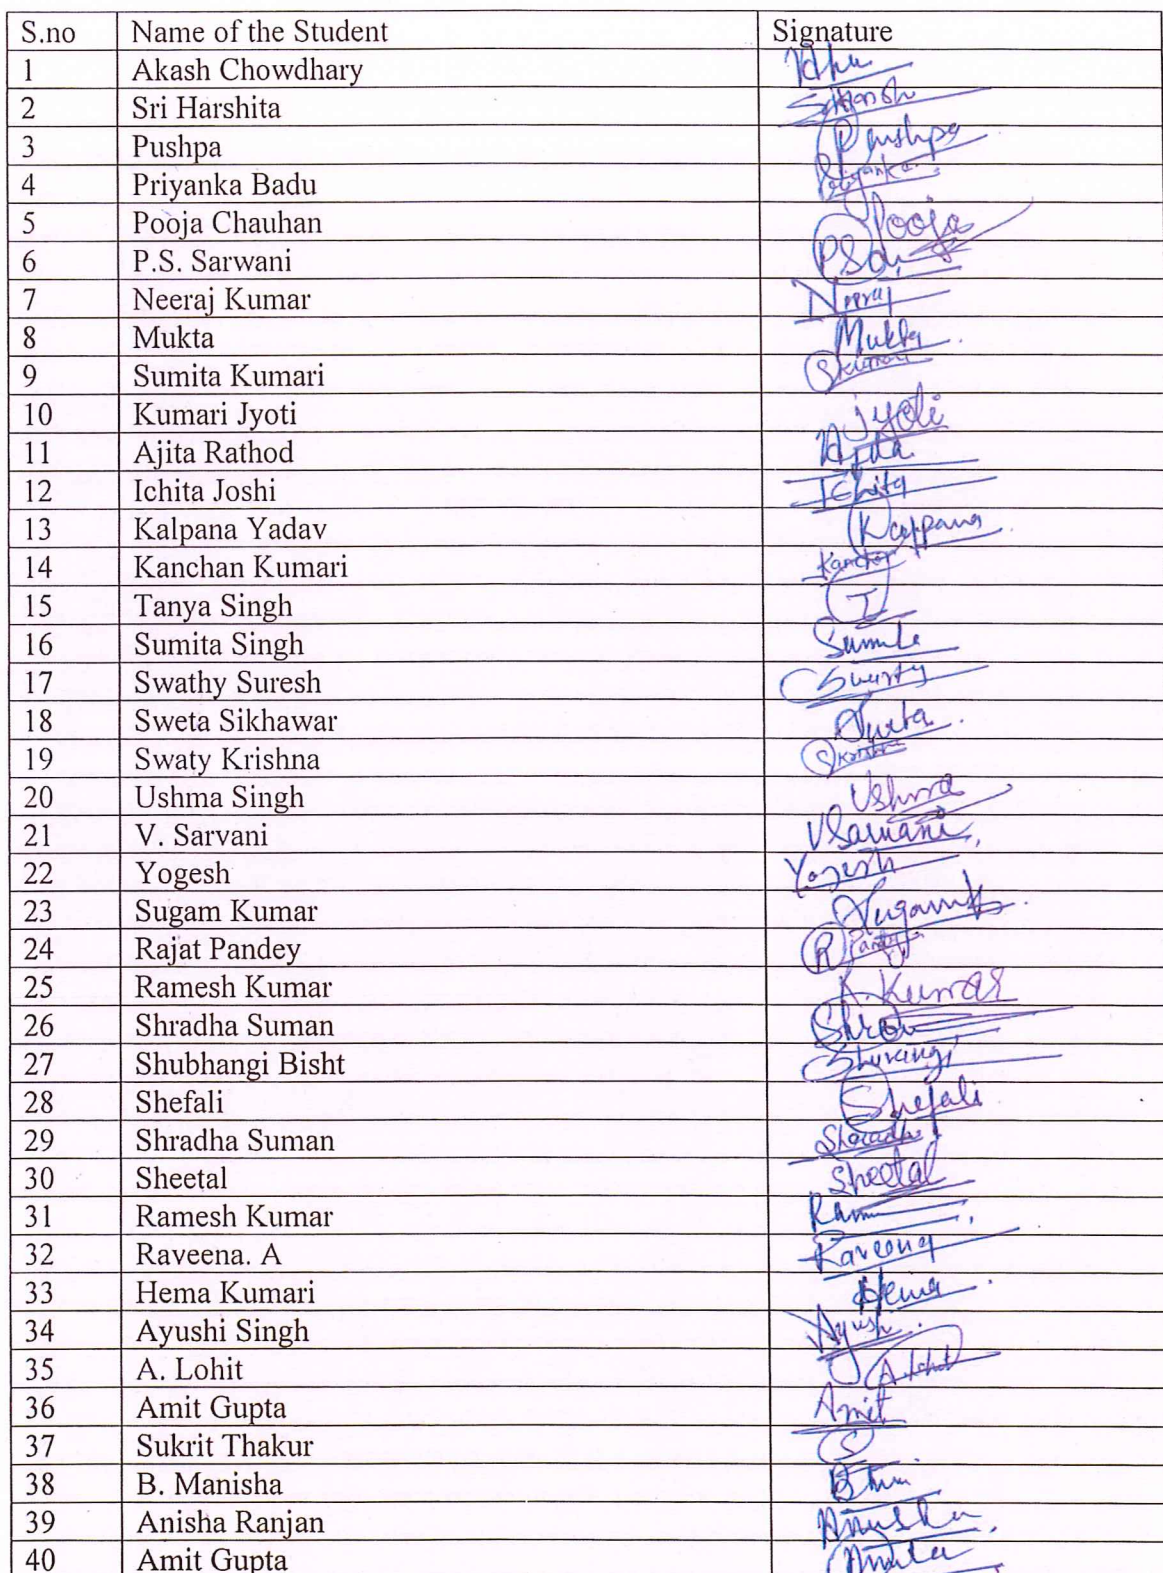 S.no Name of the Student Signature
1 Akash Chowdhary
2 Sri Harshita
3 Pushpa Pushpa
4 Priyanka Badu Priyanka
5 Pooja Chauhan Pooja
6 P.S. Sarwani
7 Neeraj Kumar Neeraj
8 Mukta Mukta
9 Sumita Kumari SKumari
10 Kumari Jyoti Jyoti
11 Ajita Rathod Ajita
12 Ichita Joshi Ichita
13 Kalpana Yadav Kalpana
14 Kanchan Kumari Kanchan
15 Tanya Singh T
16 Sumita Singh
17 Swathy Suresh
18 Sweta Sikhawar Sweta
19 Swaty Krishna SKrishna
20 Ushma Singh Ushma
21 V. Sarvani VSarvani
22 Yogesh Yogesh
23 Sugam Kumar
24 Rajat Pandey R Pandey
25 Ramesh Kumar R. Kumar
26 Shradha Suman
27 Shubhangi Bisht
28 Shefali Shefali
29 Shradha Suman
30 Sheetal Sheetal
31 Ramesh Kumar
32 Raveena. A Raveena
33 Hema Kumari Hema
34 Ayushi Singh Ayushi
35 A. Lohit A. Lohit
36 Amit Gupta Amit
37 Sukrit Thakur S
38 B. Manisha
39 Anisha Ranjan
40 Amit Gupta